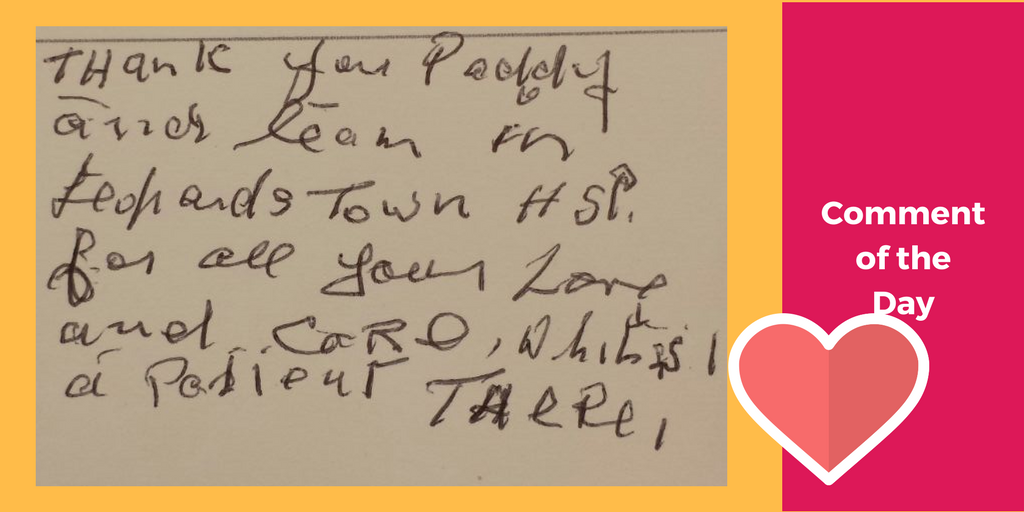 THank you Paddy
and team in
Leopards Town HSP.
for all your Love
and CARE, Whilst
a Patient THERe,
Comment
of the
Day